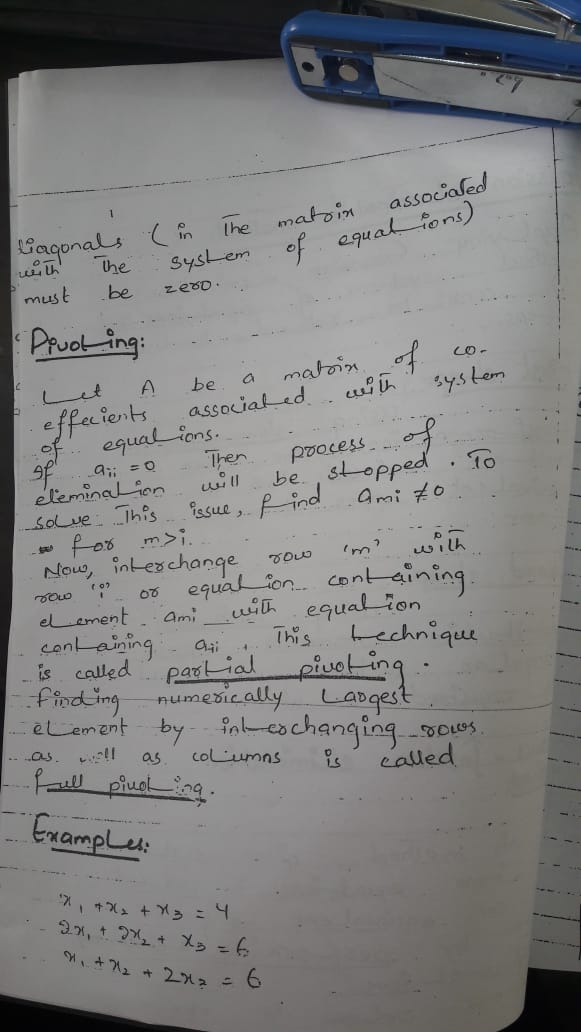 diagonals (in The matrix associated
with The system of equations)
must be zero.
Pivoting:
Let A be a matrix of co-
effecients associated with system
of equations.
If aii = 0 Then process of
elemination will be stopped. To
solve This issue, find ami ≠ 0
for m>i.
Now, interchange row 'm' with
row 'i' or equation containing
element ami with equation
containing aii. This technique
is called partial pivoting.
finding numerically Largest
element by interchanging rows
as well as columns is called
full pivoting.
Examples:
x₁ + x₂ + x₃ = 4
2x₁ + 2x₂ + x₃ = 6
x₁ + x₂ + 2x₃ = 6